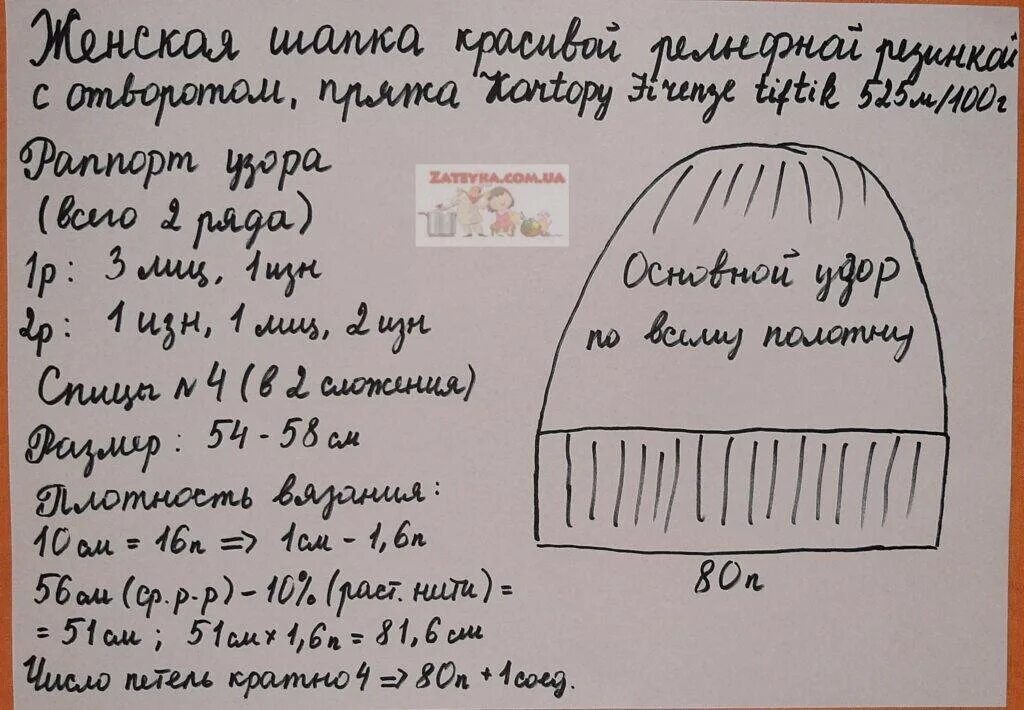 Женская шапка красивой рельефной резинкой
с отворотом, пряжа Kartopy Firenze tiftik 525м/100г
Раппорт узора
(всего 2 ряда)
1р: 3 лиц, 1 изн
2р: 1 изн, 1 лиц, 2 изн
Спицы №4 (в 2 сложения)
Размер: 54-58 см
Плотность вязания:
10 см = 16п => 1см - 1,6п
56 см (ср. р-р) - 10% (раст. нити) =
= 51 см; 51 см × 1,6п = 81,6 см
Число петель кратно 4 => 80п + 1 соед.
ZATEYKA.COM.UA
Основной узор
по всему полотну
80п